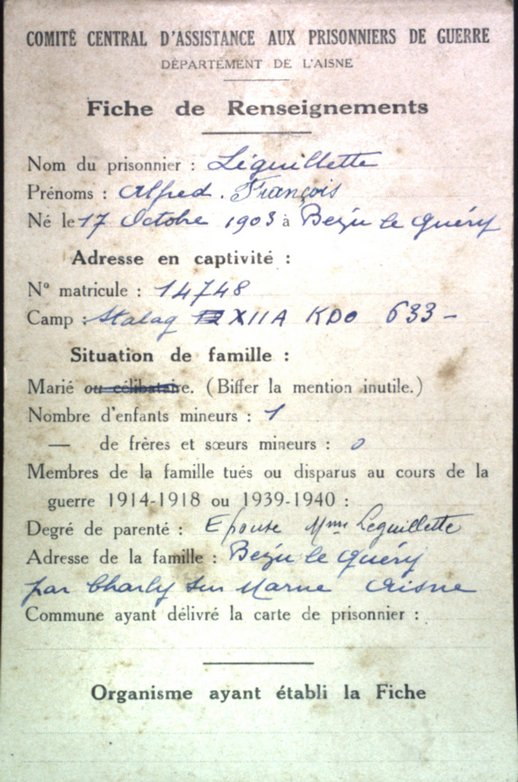 COMITÉ CENTRAL D'ASSISTANCE AUX PRISONNIERS DE GUERRE
DÉPARTEMENT DE L'AISNE
Fiche de Renseignements
Nom du prisonnier : Léguillette
Prénoms : Alfred. François
Né le 17 Octobre 1903 à Bezu le Guéry
Adresse en captivité :
Nº matricule : 14748
Camp : Stalag XIIA KDO 633 -
Situation de famille :
Marié ou célibataire. (Biffer la mention inutile.)
Nombre d'enfants mineurs : 1
— de frères et sœurs mineurs : 0
Membres de la famille tués ou disparus au cours de la
guerre 1914-1918 ou 1939-1940 :
Degré de parenté : Epouse Mme Leguillette
Adresse de la famille : Bezu le Guéry
par Charly sur Marne Aisne
Commune ayant délivré la carte de prisonnier :
Organisme ayant établi la Fiche